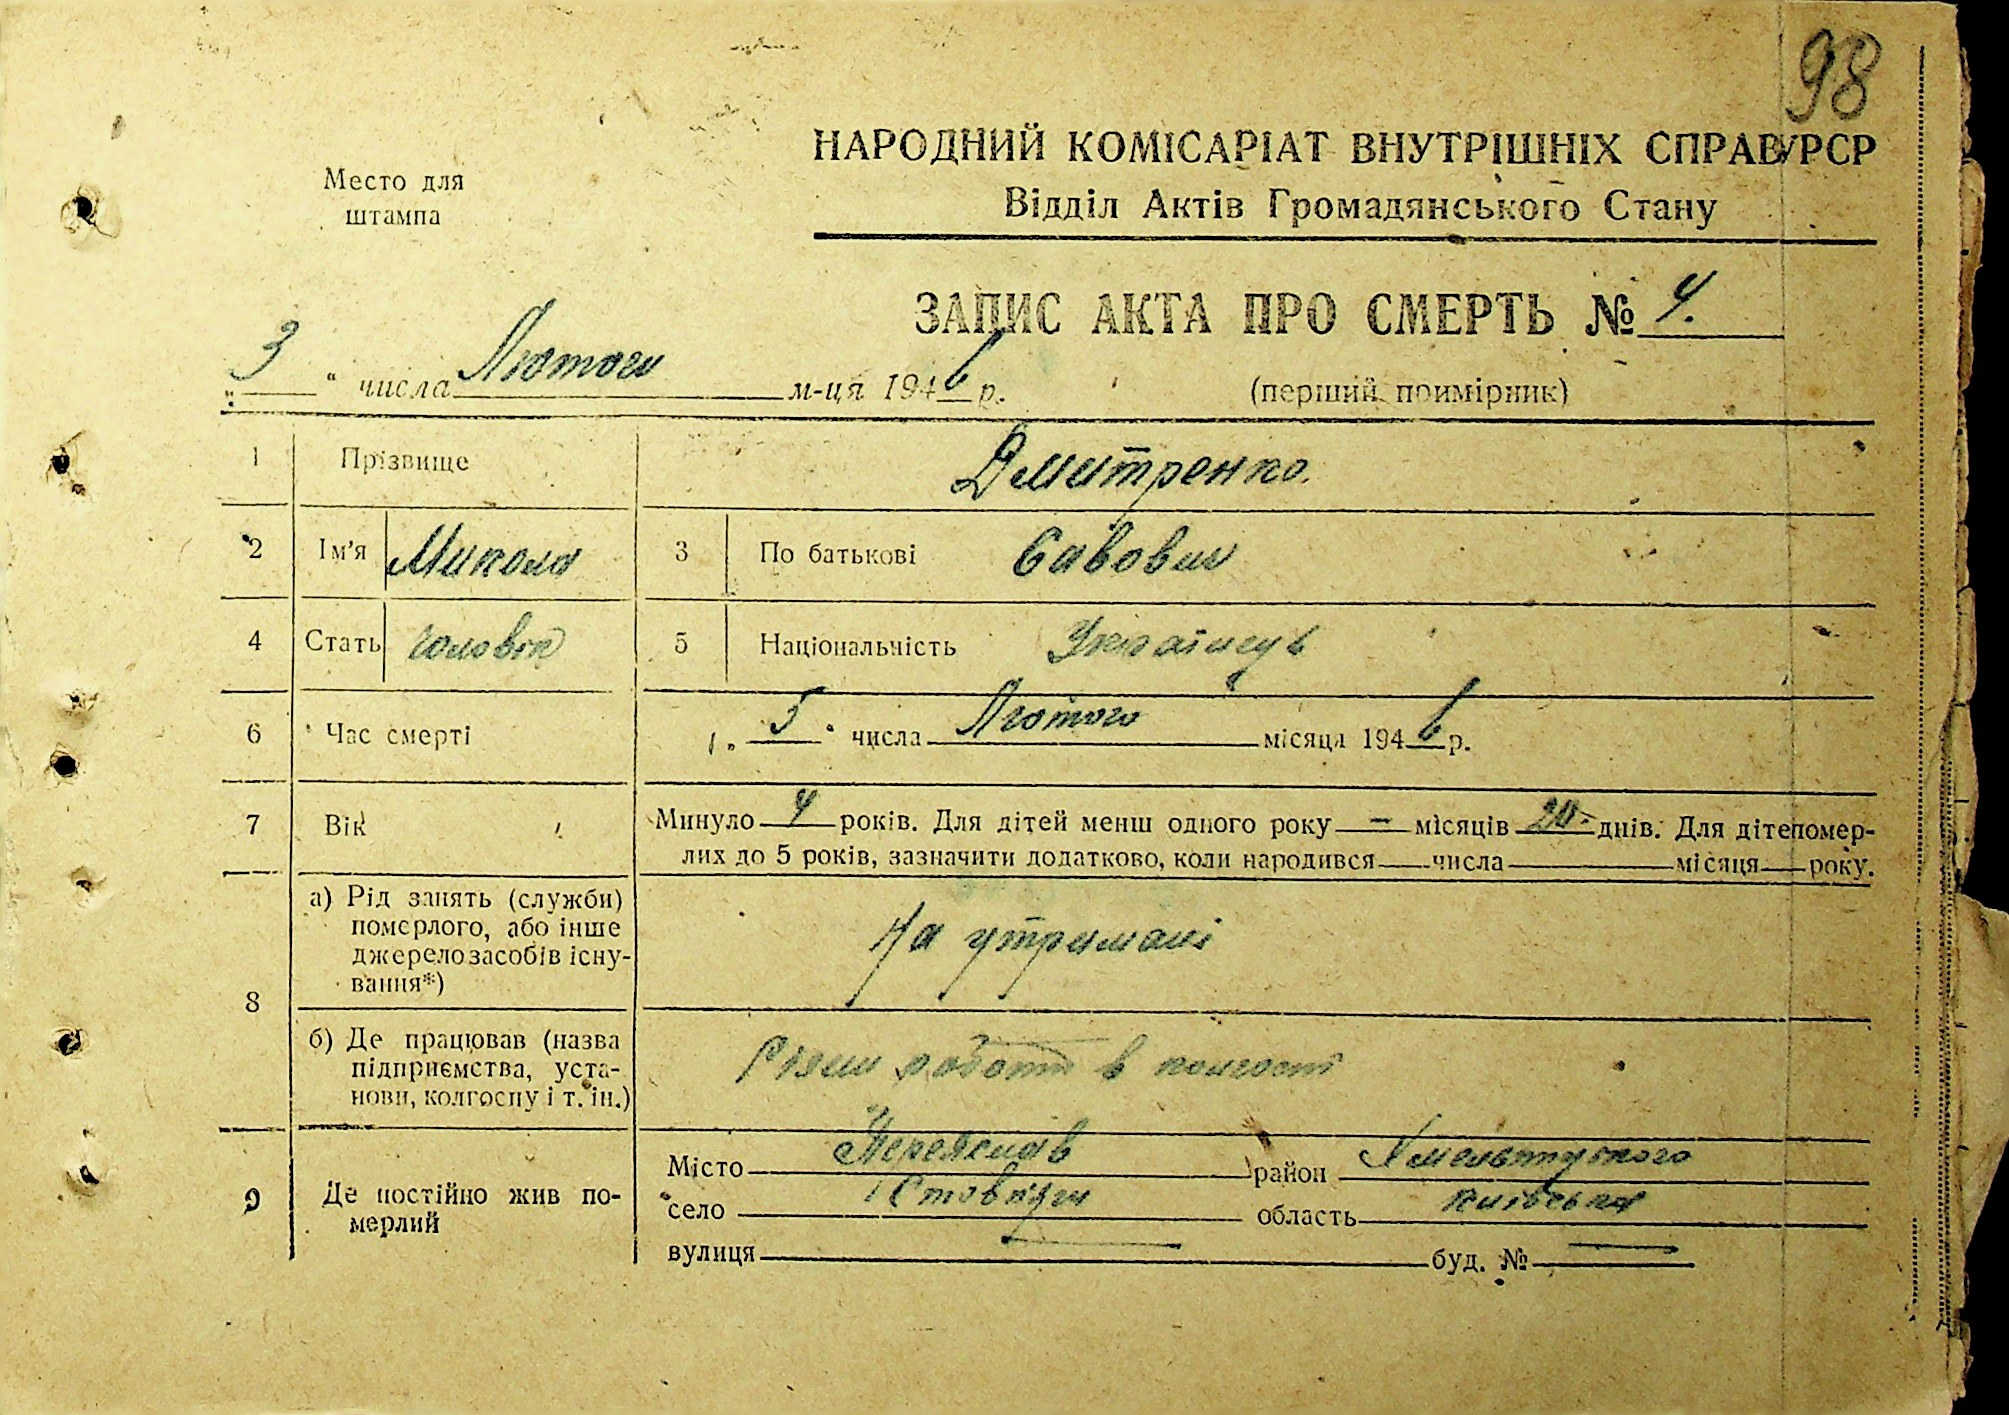 98
НАРОДНИЙ КОМІСАРІАТ ВНУТРІШНІХ СПРАВ УРСР
Відділ Актів Громадянського Стану
Место для
штампа
ЗАПИС АКТА ПРО СМЕРТЬ № 4.
"3" числа Лютого м-ця 1946 р.
(перший примірник)
1 Прізвище Дмитренко.
2 Ім'я Микола 3 По батькові Савович
4 Стать чоловік 5 Національність Українець
6 Час смерті „5“ числа Лютого місяця 1946 р.
7 Вік Минуло 4 років. Для дітей менш одного року — місяців 20 днів. Для дітей помер-
лих до 5 років, зазначити додатково, коли народився числа місяця року.
8 а) Рід занять (служби)
померлого, або інше
джерело засобів існу-
вання*)
На утримані
б) Де працював (назва
підприємства, уста-
нови, колгоспу і т. ін.)
Різни роботи в колгоспі
9 Де постійно жив по-
мерлий
Місто Переяслав район Хмельницького
село Стовпяги область київська
вулиця — буд. № —